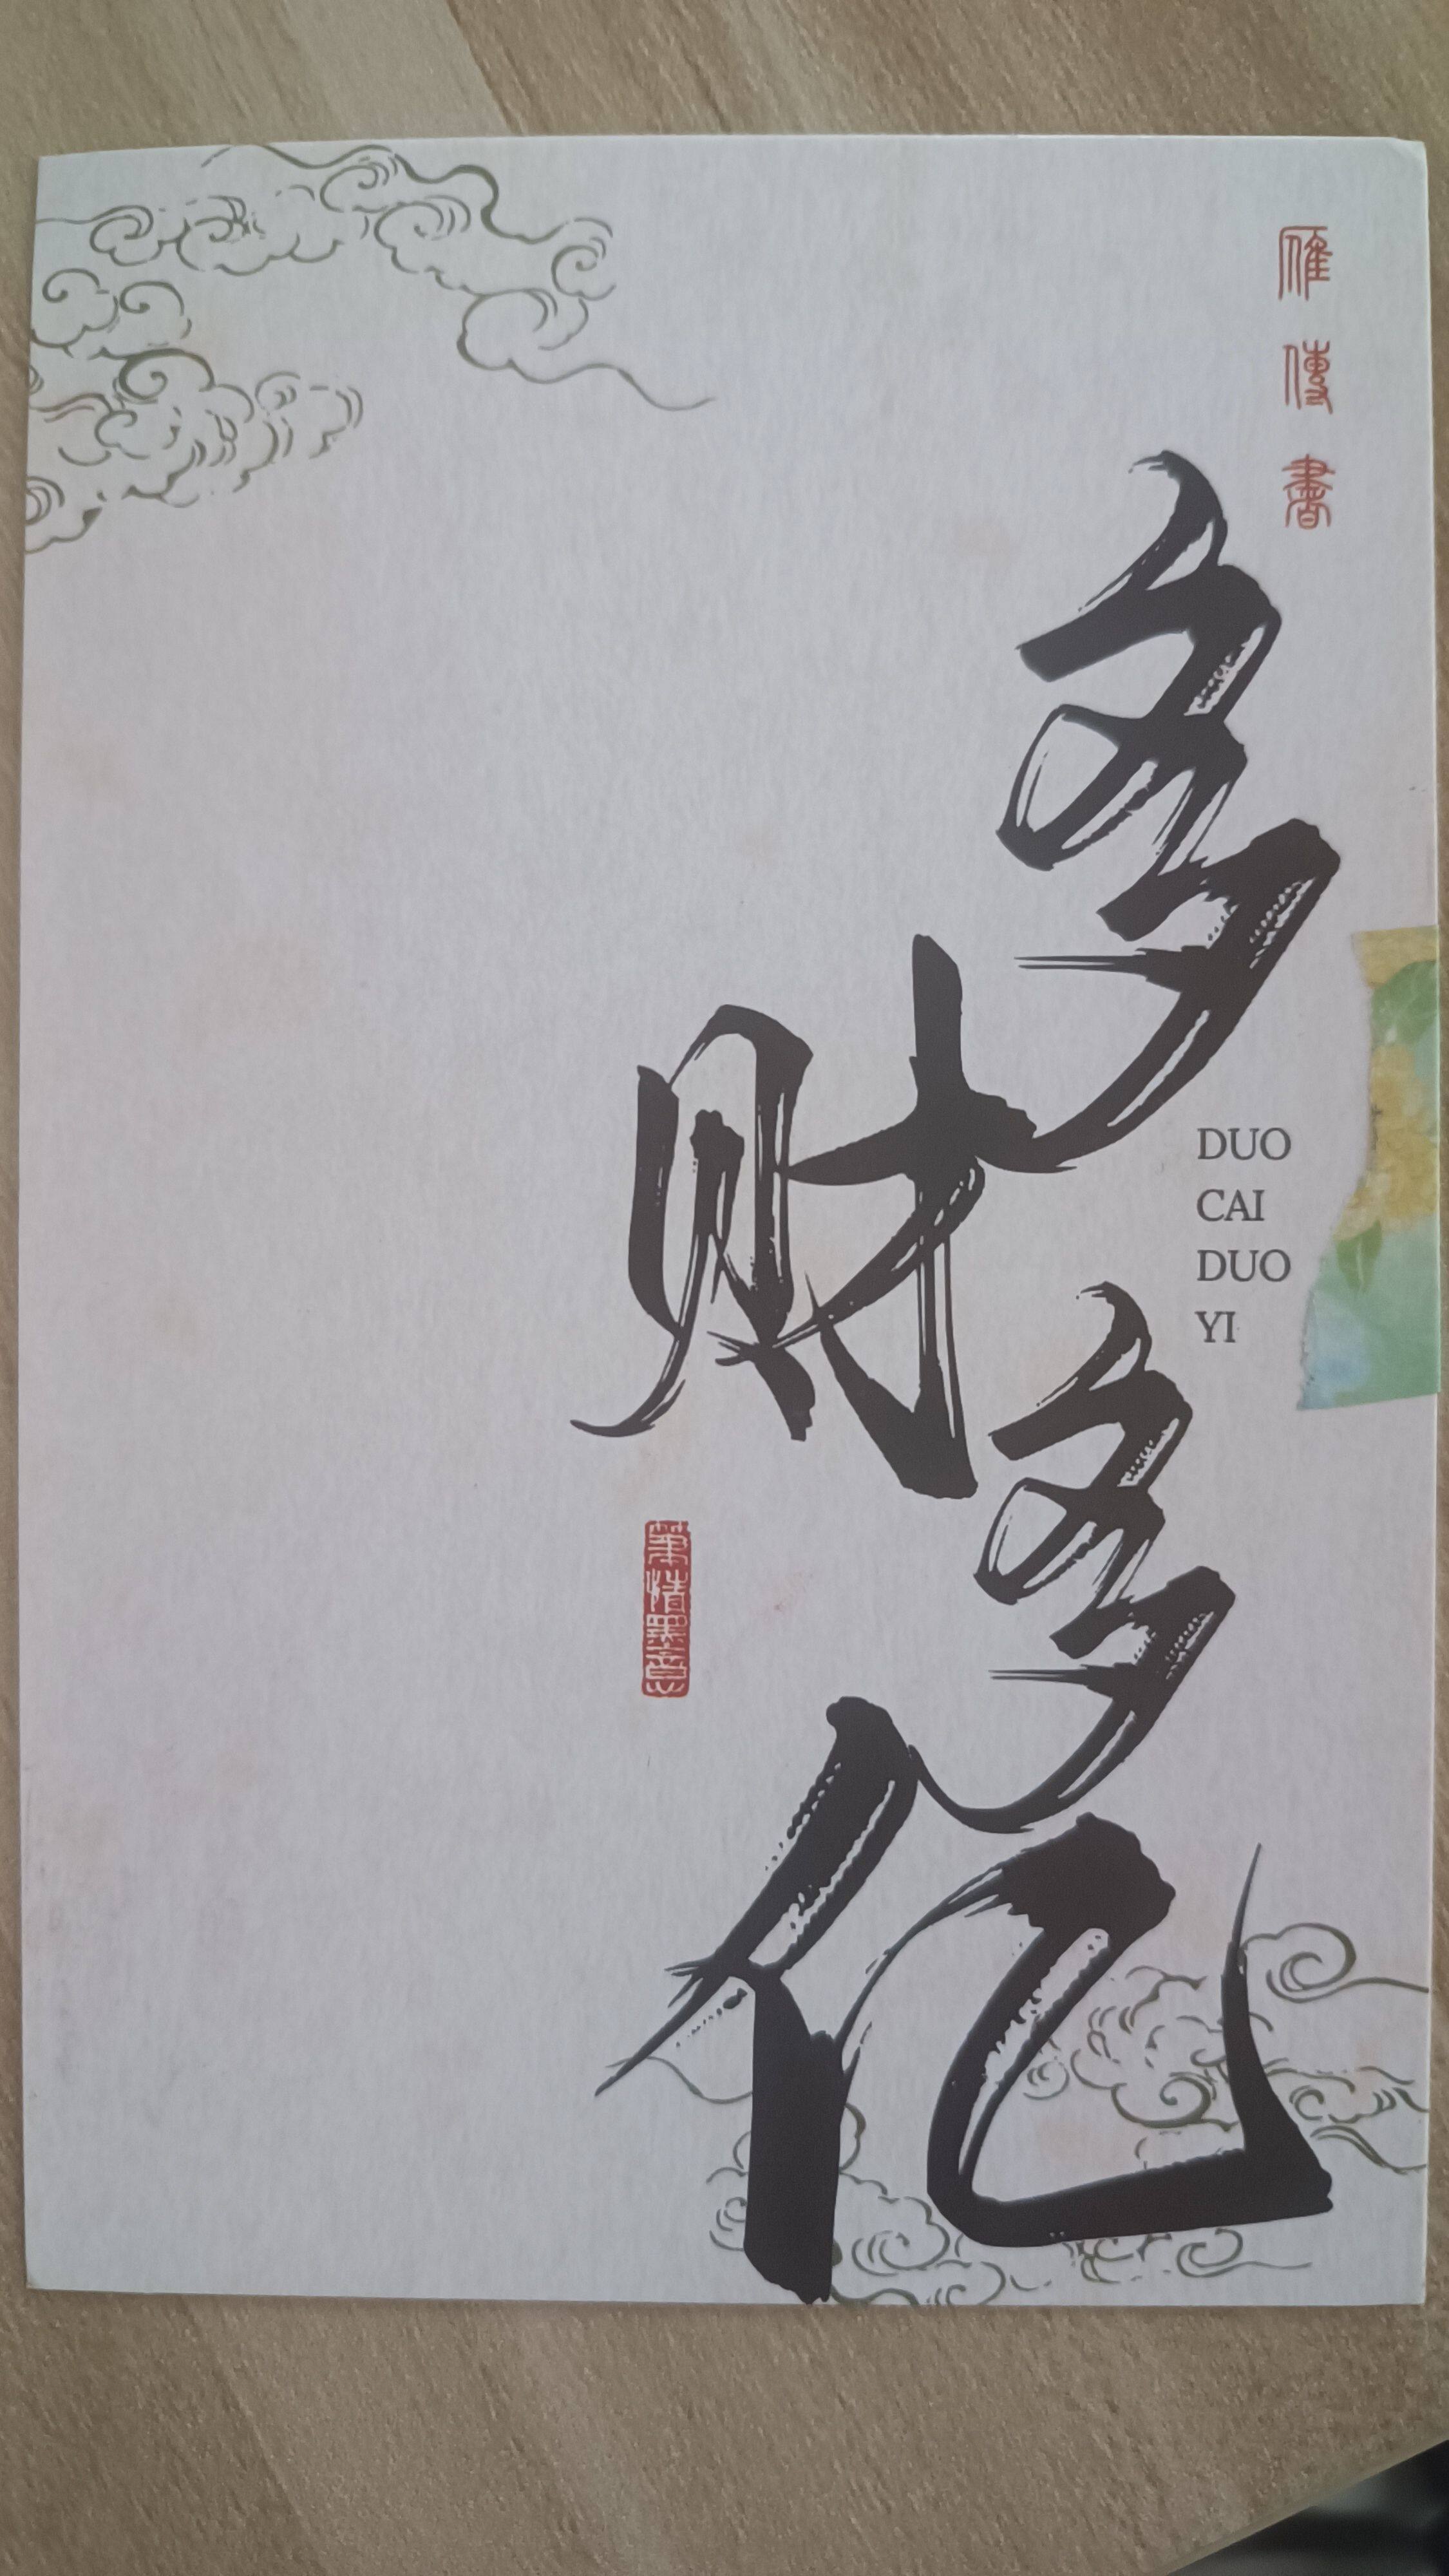 雁傳書
多财多亿
DUO
CAI
DUO
YI
筆情墨意